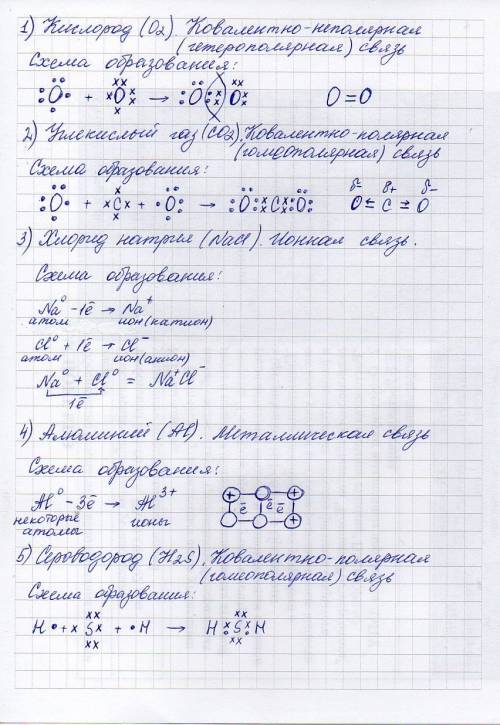 1) Кислород (O2). Ковалентно-неполярная
(гетерополярная) связь
Схема образования:
O + O → O O O=O
2) Углекислый газ (CO2). Ковалентно-полярная
(гомеополярная) связь
Схема образования:
δ- δ+ δ-
O + C + O → O C O O ⇐ C ⇒ O
3) Хлорид натрия (NaCl). Ионная связь.
Схема образования:
Na⁰ - 1ē → Na⁺
атом ион (катион)
Cl⁰ + 1ē → Cl⁻
атом ион (анион)
Na⁰ + Cl⁰ = Na⁺Cl⁻
1ē
4) Алюминий (Al). Металлическая связь
Схема образования:
Al⁰ - 3ē → Al³⁺
некоторые ионы
атомы
+ +
ē ē ē
+
5) Сероводород (H2S). Ковалентно-полярная
(гомеополярная) связь
Схема образования:
H• + xSx + •H → H S H